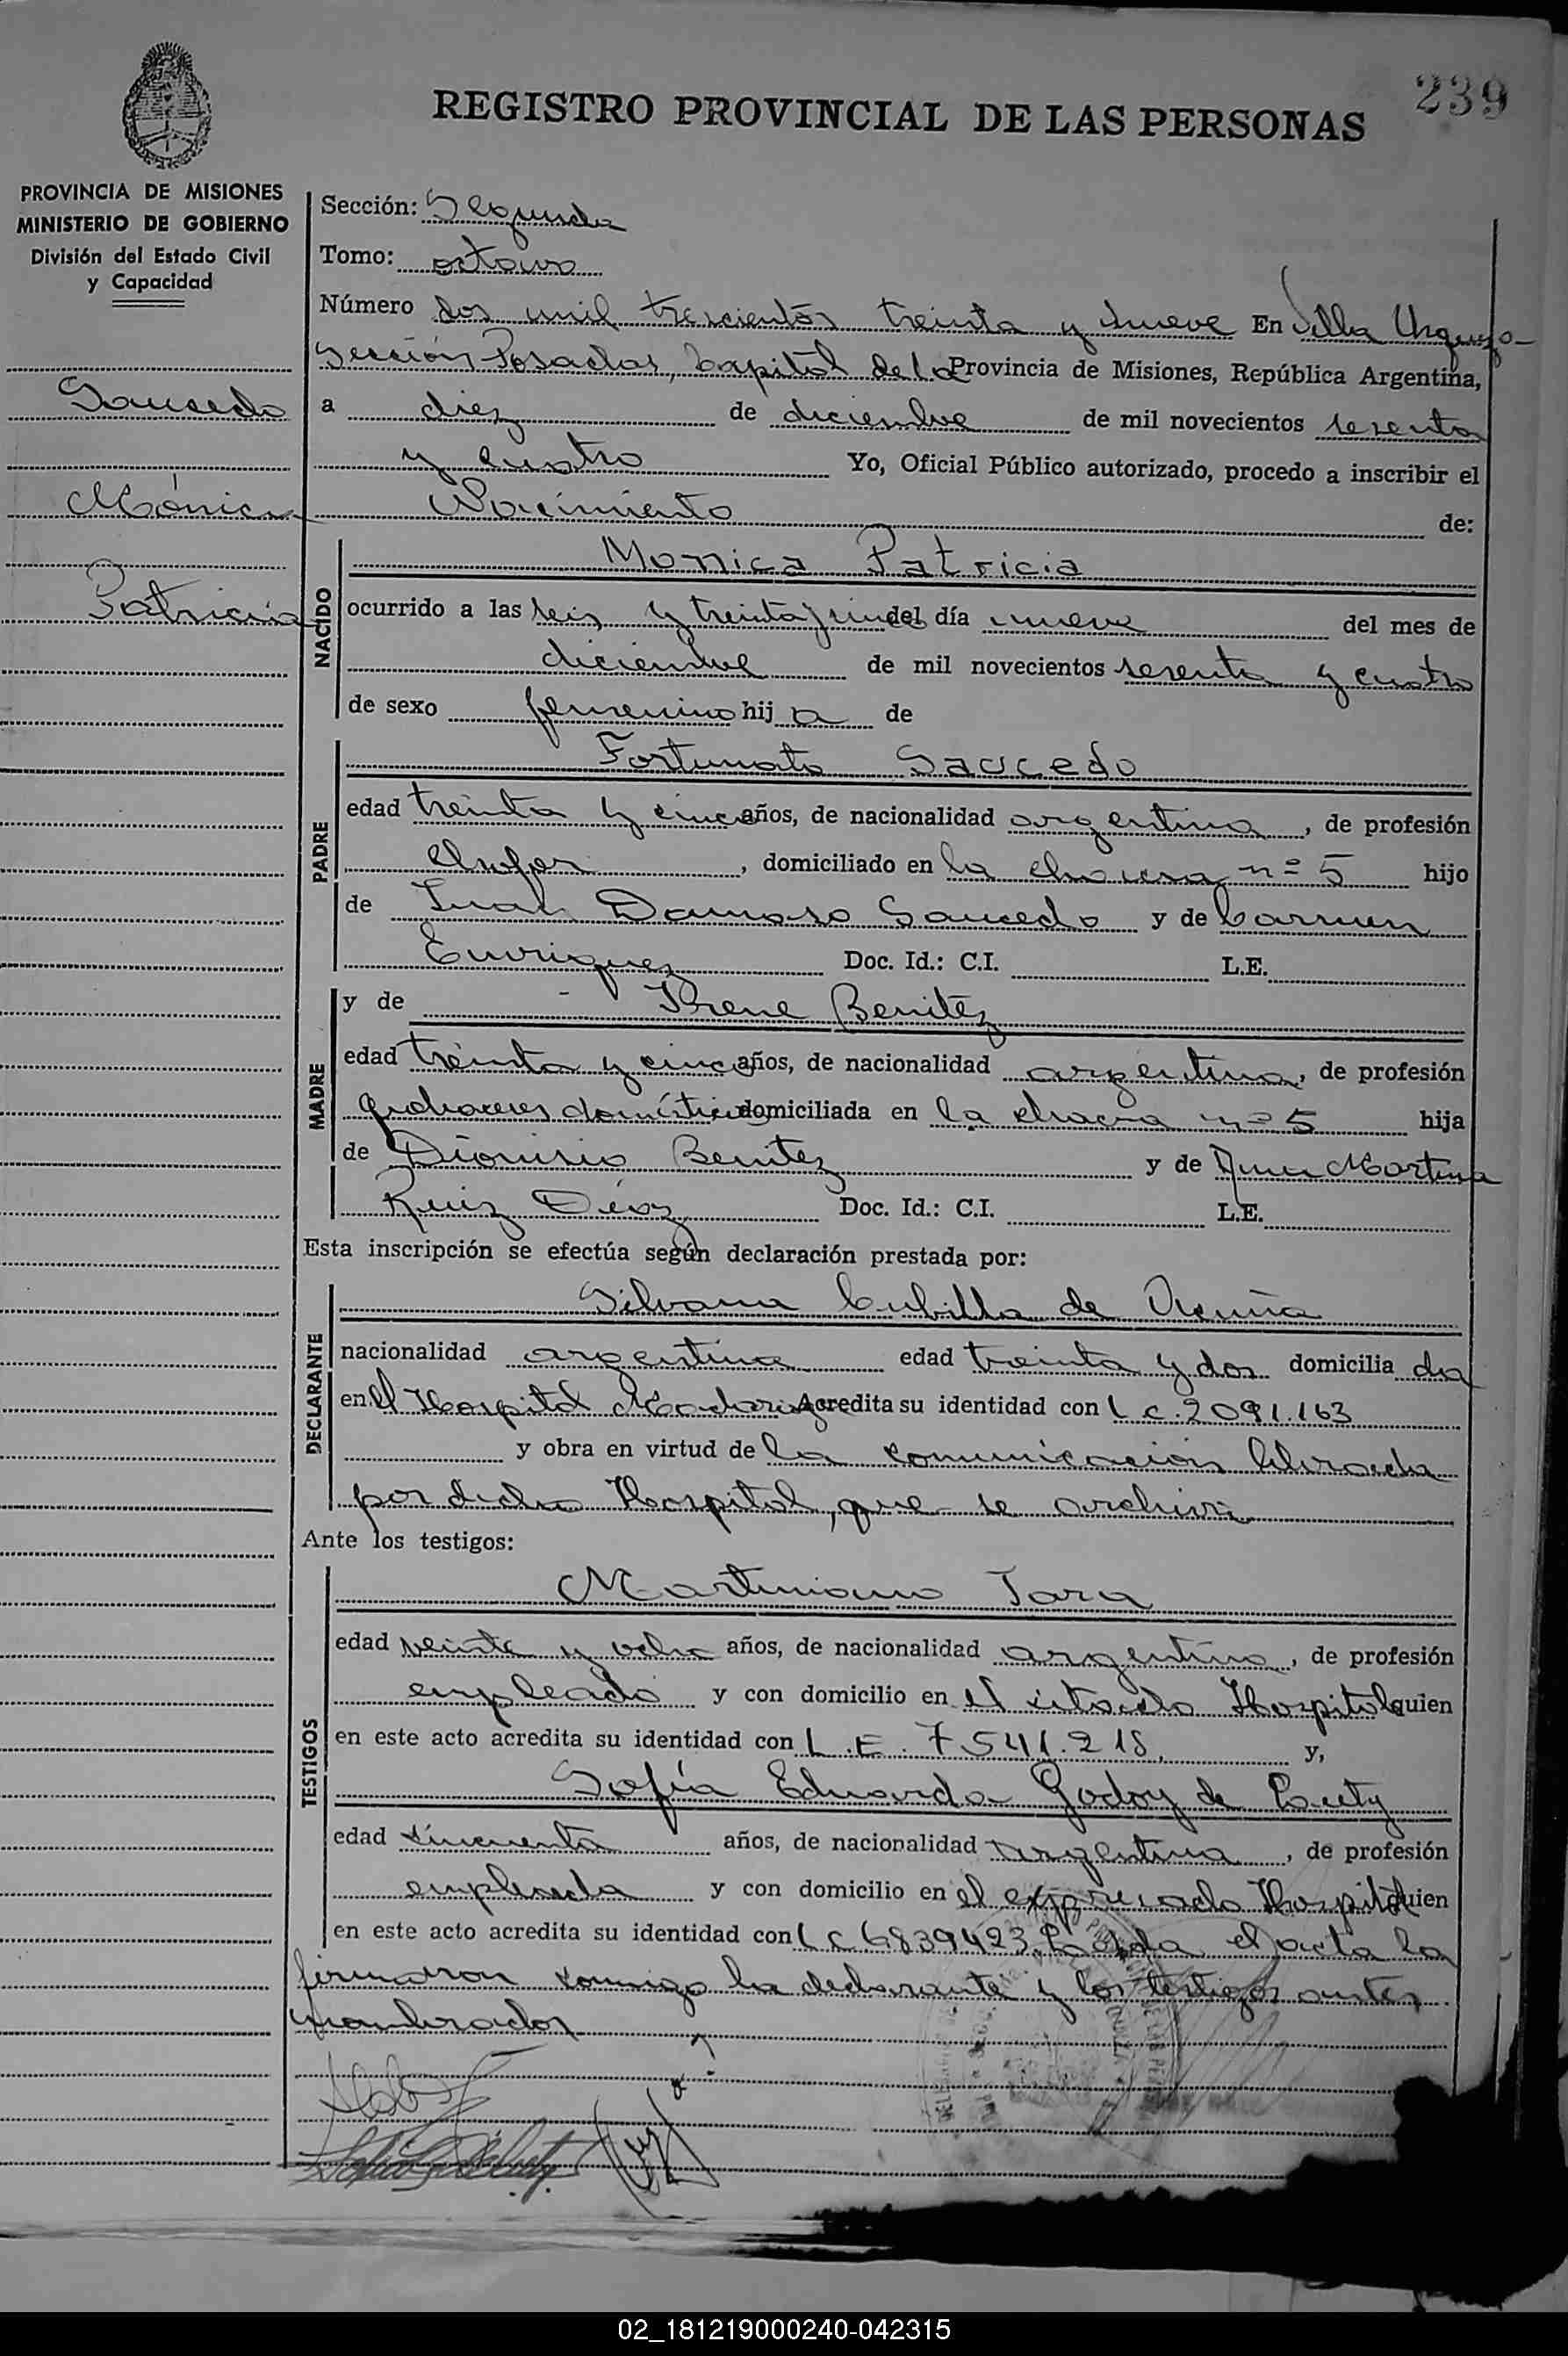 239
REGISTRO PROVINCIAL DE LAS PERSONAS
PROVINCIA DE MISIONES
MINISTERIO DE GOBIERNO
División del Estado Civil
y Capacidad
Saucedo
Mónica
Patricia
Sección: Segunda
Tomo: octavo
Número dos mil trescientos treinta y nueve En Villa Urquiza
Sección Posadas, Capital de la Provincia de Misiones, República Argentina,
a diez de diciembre de mil novecientos sesenta
y cuatro Yo, Oficial Público autorizado, procedo a inscribir el
Nacimiento de:
NACIDO
Monica Patricia
ocurrido a las seis y treinta del día nueve del mes de
diciembre de mil novecientos sesenta y cuatro
de sexo femenino hija de
PADRE
Fortunato Saucedo
edad treinta y cinco años, de nacionalidad argentina, de profesión
chofer, domiciliado en la chacra nº 5 hijo
de Juan Damaso Saucedo y de Carmen
Enriquez Doc. Id.: C.I. L.E.
MADRE
y de Irene Benitez
edad treinta y cinco años, de nacionalidad argentina, de profesión
quehaceres domésticos domiciliada en la chacra nº 5 hija
de Dionisio Benitez y de Martina
Ruiz Diaz Doc. Id.: C.I. L.E.
Esta inscripción se efectúa según declaración prestada por:
DECLARANTE
Silvana Cubilla de Acuña
nacionalidad argentina edad treinta y dos domiciliada
en el Hospital Madariaga Acredita su identidad con L C. 2091.163
y obra en virtud de la comunicación librada
por dicho Hospital, que se archiva
Ante los testigos:
TESTIGOS
Martiniano Jara
edad veinte y ocho años, de nacionalidad argentino, de profesión
empleado y con domicilio en el citado Hospital quien
en este acto acredita su identidad con L.E. 7541.218, y,
Sofía Eduarda Godoy de
edad cincuenta años, de nacionalidad argentina, de profesión
empleada y con domicilio en el expresado Hospital quien
en este acto acredita su identidad con L C 6839423. Leída el acta la
firmaron conmigo la declarante y los testigos antes
nombrados
02_181219000240-042315